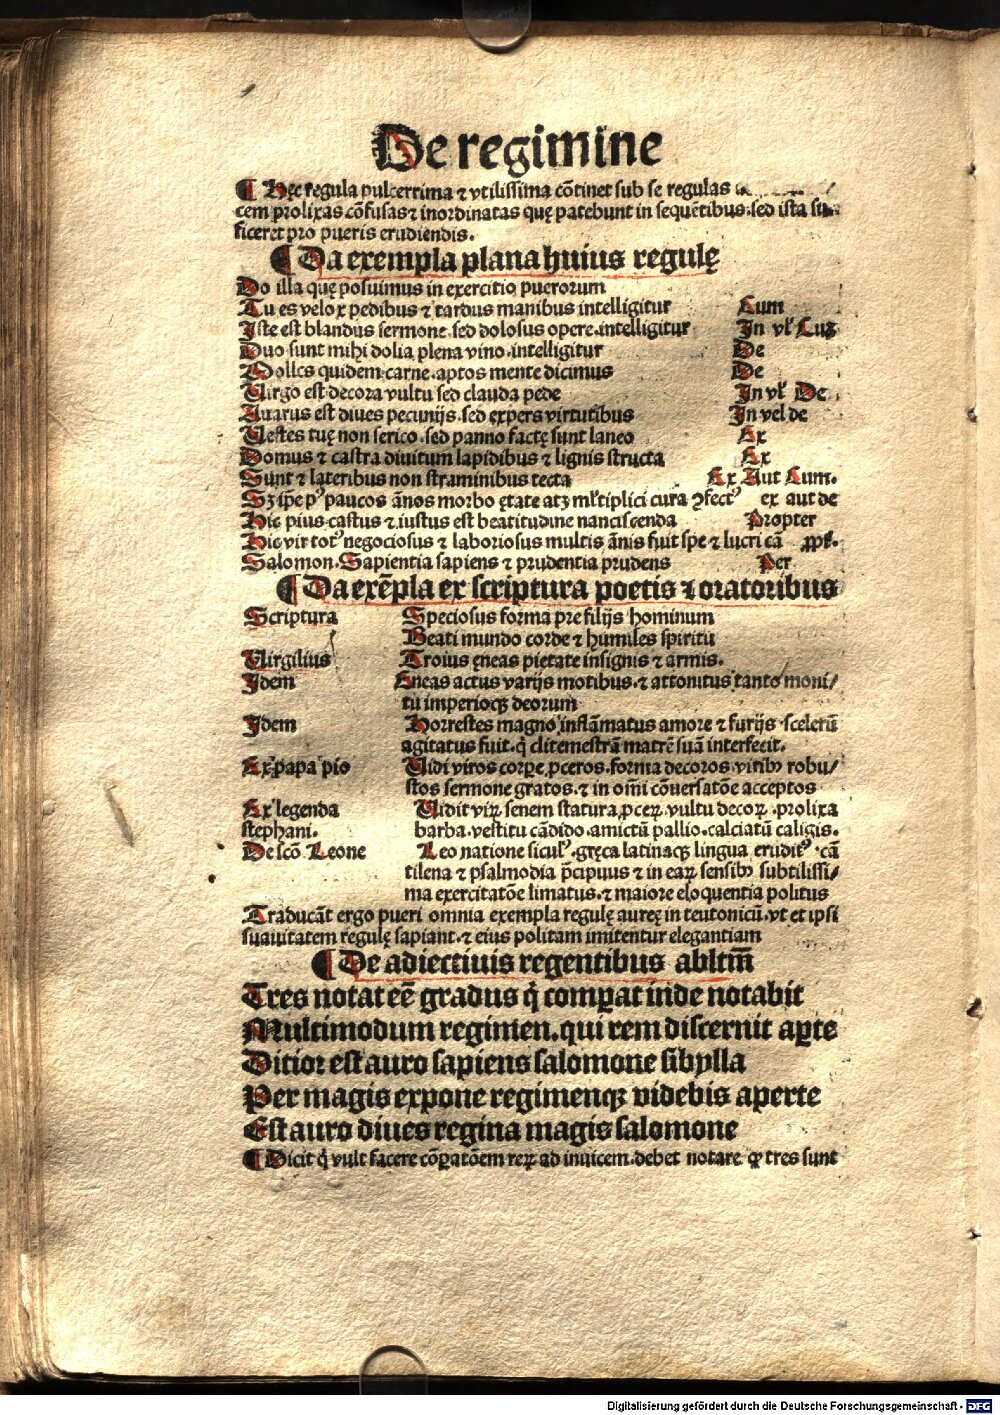 De regimine
¶ Hec regula pulcerrima ⁊ vtilissima cõtinet sub se regulas
cem prolixas cõfusas ⁊ inordinatas quę patebunt in sequẽtibus. sed ista suf
ficeret pro pueris erudiendis.
¶ Da exempla plana huius regulę
Do illa quę posuimus in exercitio puerorum
Tu es velox pedibus ⁊ tardus manibus intelligitur Cum
Iste est blandus sermone. sed dolosus opere. intelligitur In vl' Cuȝ
Duo sunt mihi dolia plena vino. intelligitur De
Molles quidem carne. aptos mente dicimus De
Uirgo est decora vultu sed clauda pede In vl' De
Auarus est diues pecunijs. sed expers virtutibus In vel de
Uestes tuę non serico. sed panno factę sunt laneo Ex
Domus ⁊ castra diuitum lapidibus ⁊ lignis structa Ex
Sunt ⁊ lateribus non straminibus tecta Ex Aut Cum.
Sȝ ip̃e pꝰ paucos ãnos morbo ętate atȝ ml'tiplici cura ꝯfectꝰ ex aut de
Hic pius castus ⁊ iustus est beatitudine nanciscenda Propter
Hic vir totꝰ negociosus ⁊ laboriosus multis ãnis fuit spe ⁊ lucri cã ꝓpt'.
Salomon. Sapientia sapiens ⁊ prudentia prudens Per
¶ Da exẽpla ex scriptura poetis ⁊ oratoribus
Scriptura Speciosus forma pre filijs hominum
Beati mundo corde ⁊ humiles spiritu
Uirgilius Troius ęneas pietate insignis ⁊ armis.
Idem Eneas actus varijs motibus. ⁊ attonitus tanto moni/
tu imperiocꝫ deorum
Idem Horrestes magno inflãmatus amore ⁊ furijs scelerũ
agitatus fuit. q̇ clitemestrã matrẽ suã interfecit.
Ex papa pio Uidi viros corꝑe ꝓceros. forma decoros. viribꝰ robu/
stos sermone gratos. ⁊ in om̃i cõuersatõe acceptos
Ex legenda Uidit virꝝ senem statura ꝓceꝝ. vultu decoꝝ. prolixa
stephani. barba. vestitu cãdido. amictũ pallio. calciatũ caligis.
De scõ Leone Leo natione siculꝰ. gręca latinacꝫ lingua eruditꝰ. cã
tilena ⁊ psalmodia p̃cipuus ⁊ in eaꝝ sensibꝰ subtilissi/
ma exercitatõe limatus. ⁊ maiore eloquentia politus
Traducãt ergo pueri omnia exempla regulę aureę in teutonicũ. vt et ipsi
suauitatem regulę sapiant. ⁊ eius politam imitentur elegantiam
¶ De adiectiuis regentibus abltm̃
Tres notat eẽ gradus q̇ comꝑat inde notabit
Multimodum regimen. qui rem discernit aꝑte
Ditior est auro sapiens salomone sibylla
Per magis expone regimencꝫ videbis aperte
Est auro diues regina magis salomone
¶ Dicit q̇ vult facere cõꝑatõem reꝝ ad inuicem. debet notare ꝙ tres sunt
Digitalisierung gefördert durch die Deutsche Forschungsgemeinschaft - DFG